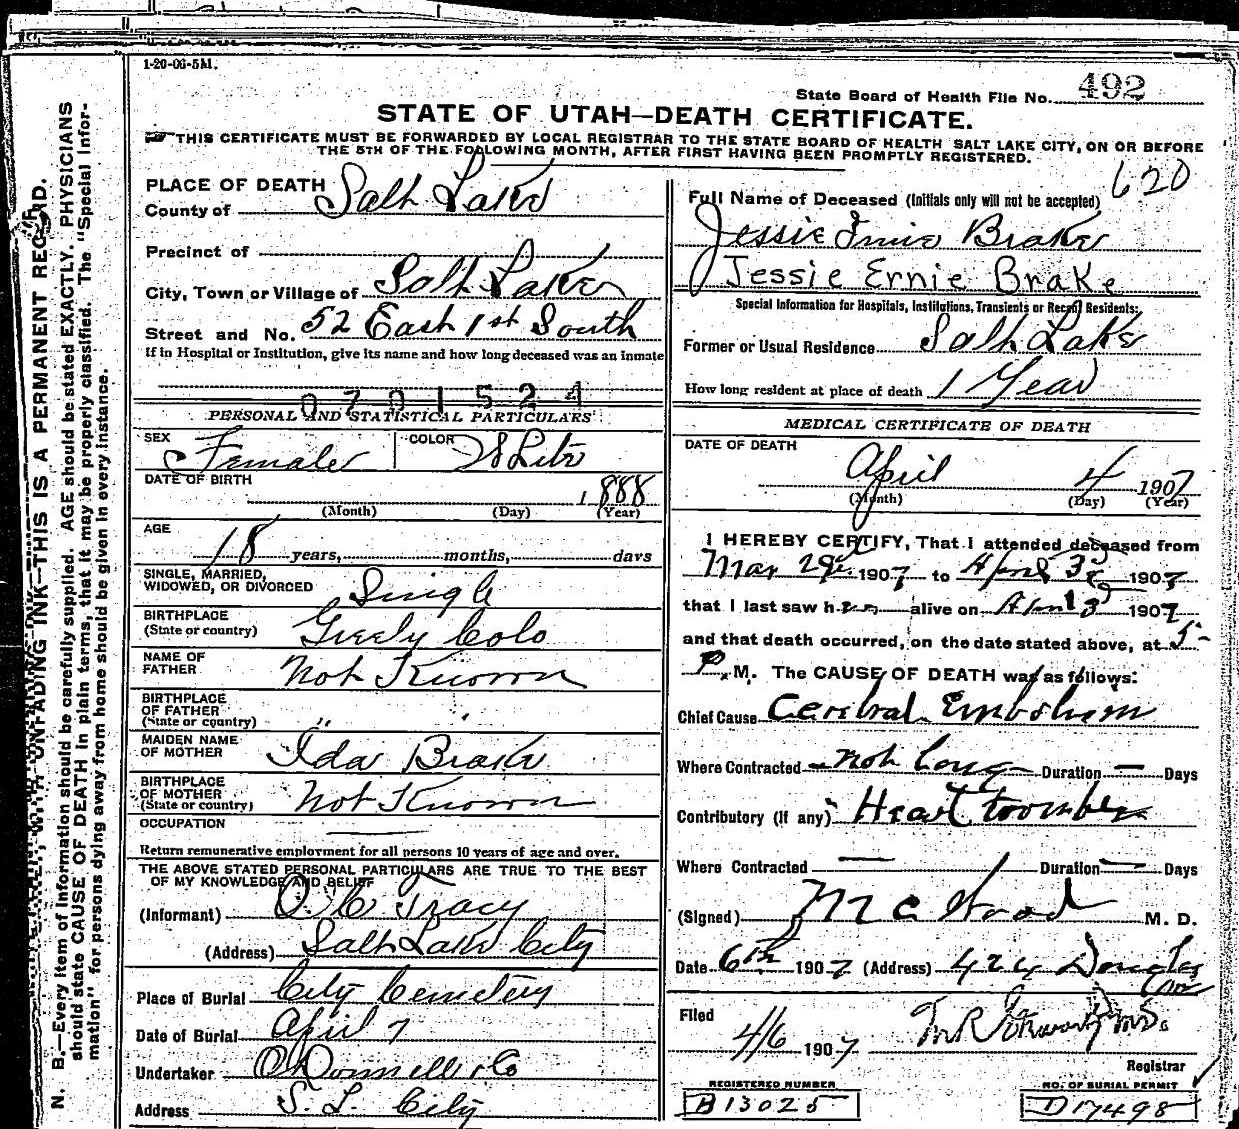 1-20-06-5M.
State Board of Health File No. 492
STATE OF UTAH—DEATH CERTIFICATE.
THIS CERTIFICATE MUST BE FORWARDED BY LOCAL REGISTRAR TO THE STATE BOARD OF HEALTH SALT LAKE CITY, ON OR BEFORE
THE 5TH OF THE FOLLOWING MONTH, AFTER FIRST HAVING BEEN PROMPTLY REGISTERED.
N. B.—Every item of information should be carefully supplied. AGE should be stated EXACTLY. PHYSICIANS
should state CAUSE OF DEATH in plain terms, that it may be properly classified. The "Special Infor-
mation" for persons dying away from home should be given in every instance.
UNFADING INK—THIS IS A PERMANENT RECORD.
PLACE OF DEATH
County of Salt Lake
Precinct of
City, Town or Village of Salt Lake
Street and No. 52 East 1st South
If in Hospital or Institution, give its name and how long deceased was an inmate
0701524
PERSONAL AND STATISTICAL PARTICULARS
SEX Female COLOR White
DATE OF BIRTH 1888
(Month) (Day) (Year)
AGE 18 years, months, days
SINGLE, MARRIED,
WIDOWED, OR DIVORCED Single
BIRTHPLACE
(State or country) Greely Colo
NAME OF
FATHER Not Known
BIRTHPLACE
OF FATHER
(State or country) " "
MAIDEN NAME
OF MOTHER Ida Brake
BIRTHPLACE
OF MOTHER
(State or country) Not Known
OCCUPATION
Return remunerative employment for all persons 10 years of age and over.
THE ABOVE STATED PERSONAL PARTICULARS ARE TRUE TO THE BEST
OF MY KNOWLEDGE AND BELIEF
(Informant) O C Tracy
(Address) Salt Lake City
Place of Burial City Cemetery
Date of Burial April 7
Undertaker O'Donnell & Co
Address S. L. City
620
Full Name of Deceased (Initials only will not be accepted)
Jessie Ernie Brake
Jessie Ernie Brake
Special Information for Hospitals, Institutions, Transients or Recent Residents:
Former or Usual Residence Salt Lake
How long resident at place of death 1 Year
MEDICAL CERTIFICATE OF DEATH
DATE OF DEATH
April 4 1907
(Month) (Day) (Year)
I HEREBY CERTIFY, That I attended deceased from
Mar 1907 to April 3 1907
that I last saw her alive on April 3 1907
and that death occurred, on the date stated above, at 5-
P. M. The CAUSE OF DEATH was as follows:
Chief Cause Cerebral Embolism
Where Contracted not long Duration — Days
Contributory (if any) Heart
Where Contracted — Duration — Days
(Signed) M. D.
Date 6th 1907 (Address) 424 Douglas
Filed
4/6 1907
Registrar
REGISTERED NUMBER
B13025
NO. OF BURIAL PERMIT
D17498